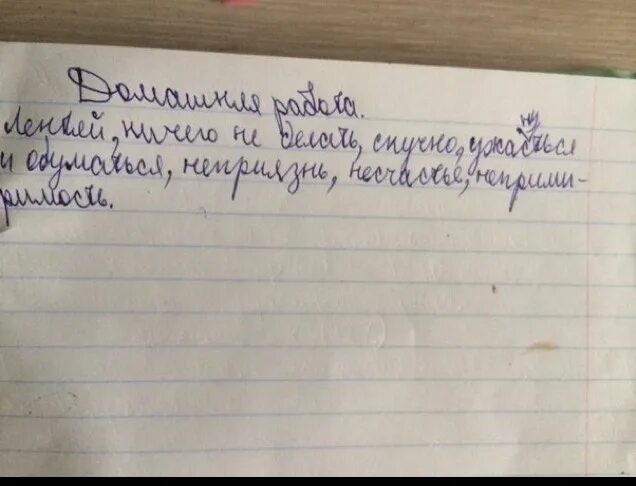 Домашняя работа.
Лентяй, ничего не делать, скучно, ужаснуться
и обуматься, неприязнь, несчастье, неприми-
римость.